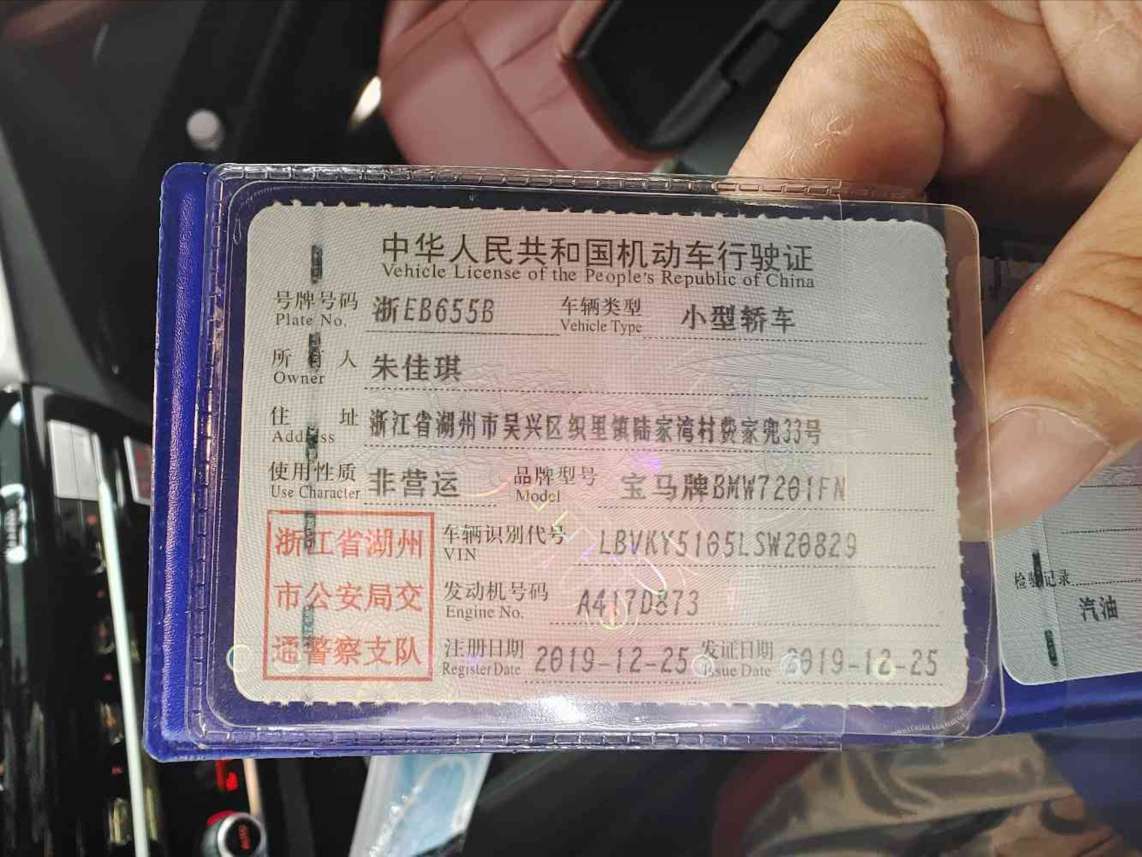 中华人民共和国机动车行驶证
Vehicle License of the People's Republic of China
号牌号码 浙EB655B 车辆类型 小型轿车
Plate No. Vehicle Type
所有人 朱佳琪
Owner
住址 浙江省湖州市吴兴区织里镇陆家湾村费家兜33号
Address
使用性质 非营运 品牌型号 宝马牌BMW7201FN
Use Character Model
浙江省湖州
市公安局交
通警察支队
车辆识别代号 LBVKY5105LSW20829
VIN
发动机号码 A417D873
Engine No.
注册日期 2019-12-25 发证日期 2019-12-25
Register Date Issue Date
检验记录
汽油